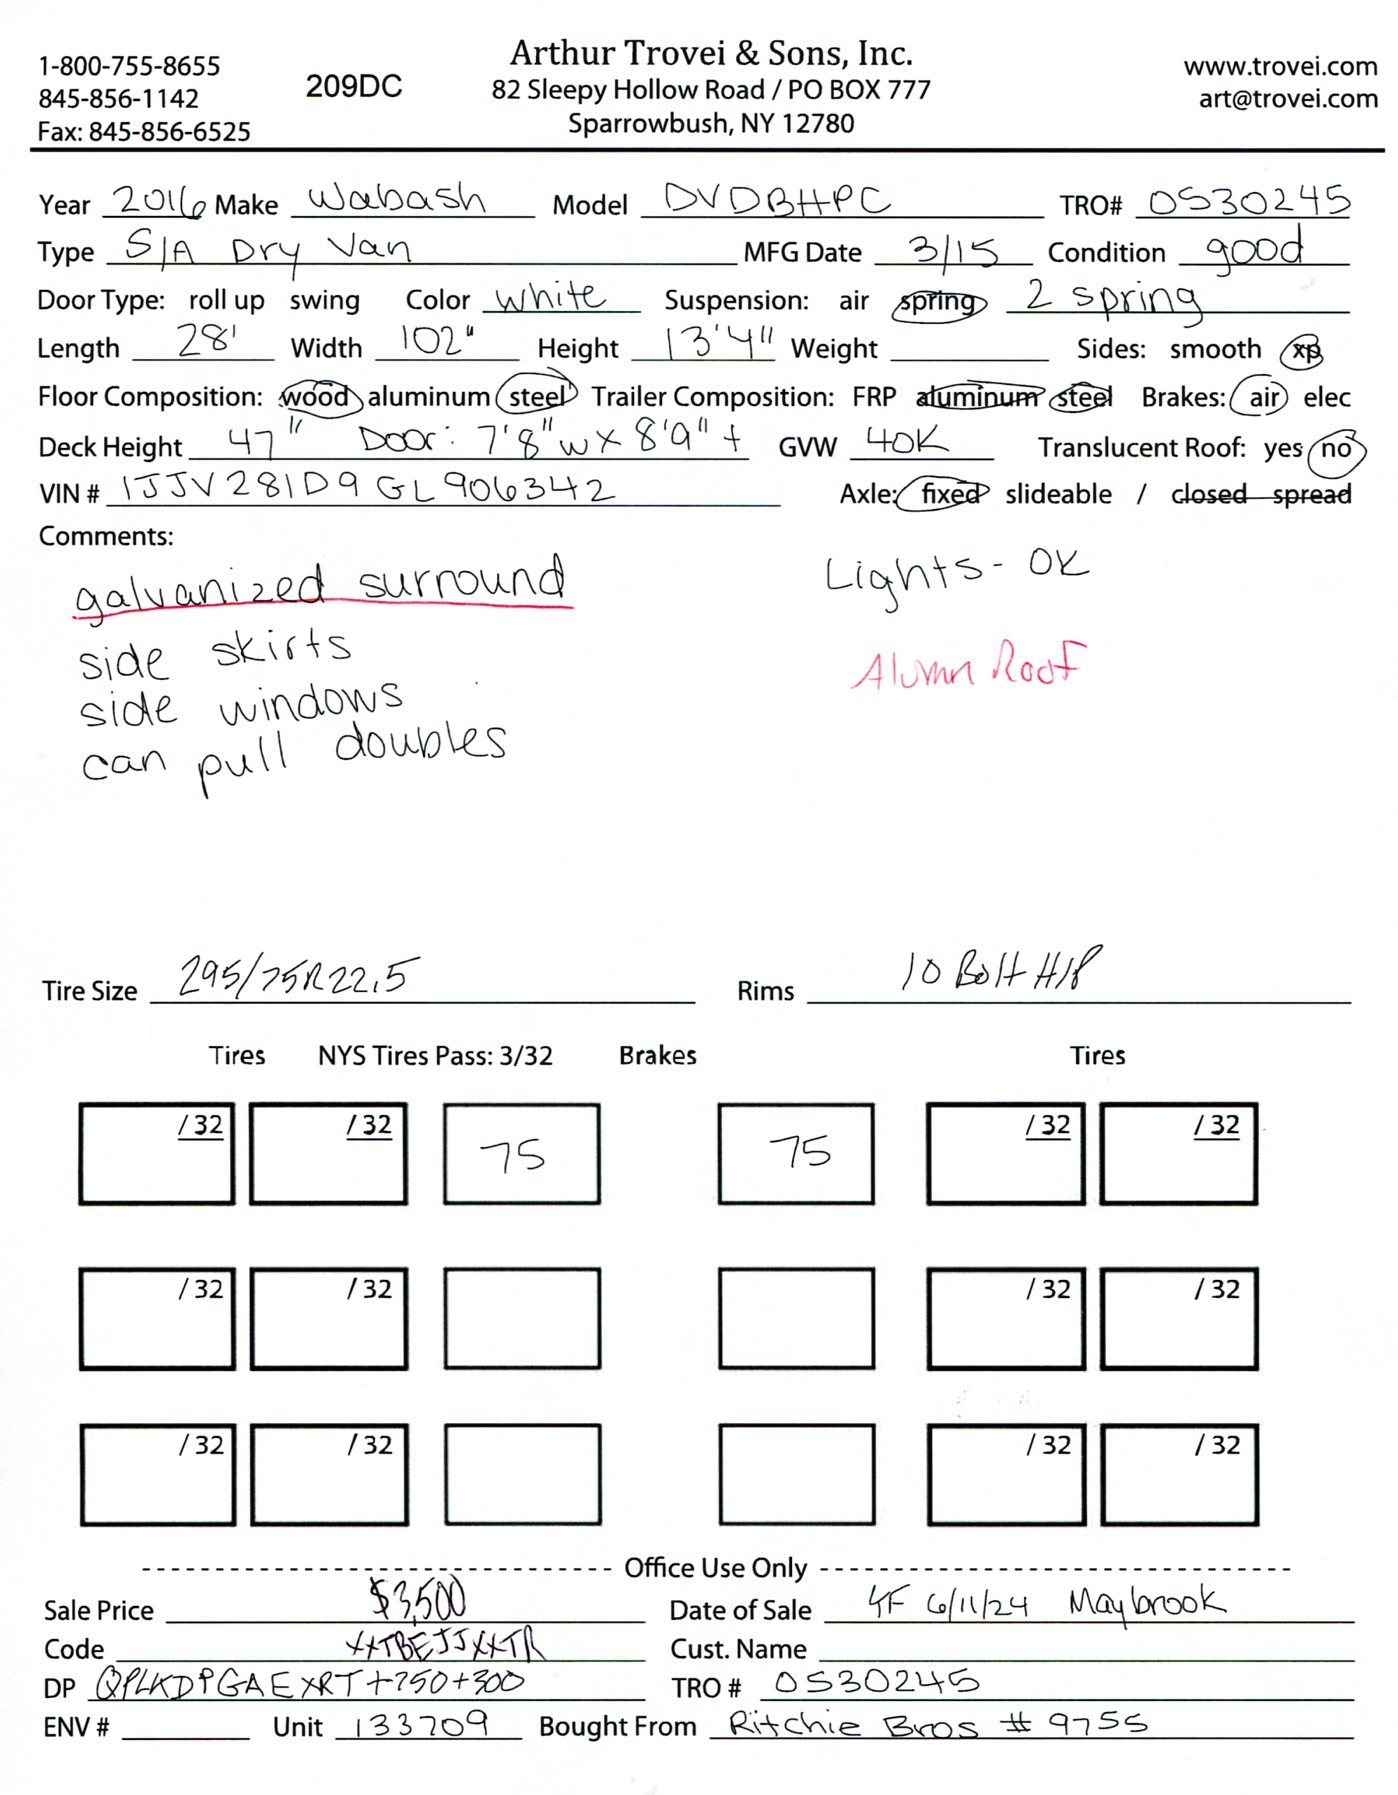 1-800-755-8655
845-856-1142
Fax: 845-856-6525
209DC
Arthur Trovei & Sons, Inc.
82 Sleepy Hollow Road / PO BOX 777
Sparrowbush, NY 12780
www.trovei.com
art@trovei.com
Year 2016 Make Wabash Model DVDBHPC TRO# 0S30245
Type S/A Dry Van MFG Date 3/15 Condition good
Door Type: roll up swing Color white Suspension: air spring 2 spring
Length 28' Width 102" Height 13'4" Weight Sides: smooth xp
Floor Composition: wood aluminum steel Trailer Composition: FRP aluminum steel Brakes: air elec
Deck Height 47" Door: 7'8"w x 8'9"+ GVW 40K Translucent Roof: yes no
VIN # 1JJV281D9GL906342 Axle: fixed slideable / closed spread
Comments:
galvanized surround
side skirts
side windows
can pull doubles
Lights - OK
Alumn Roof
Tire Size 295/75R22.5 Rims 10 Bolt H/P
Tires NYS Tires Pass: 3/32 Brakes Tires
/32 /32 75 75 /32 /32
/32 /32 /32 /32
/32 /32 /32 /32
Office Use Only
Sale Price $3,500 Date of Sale YF 6/11/24 Maybrook
Code XXTBEJJXXTR Cust. Name
DP QPLKDPGAEXRT+750+300 TRO # 0S30245
ENV # Unit 133709 Bought From Ritchie Bros # 9755